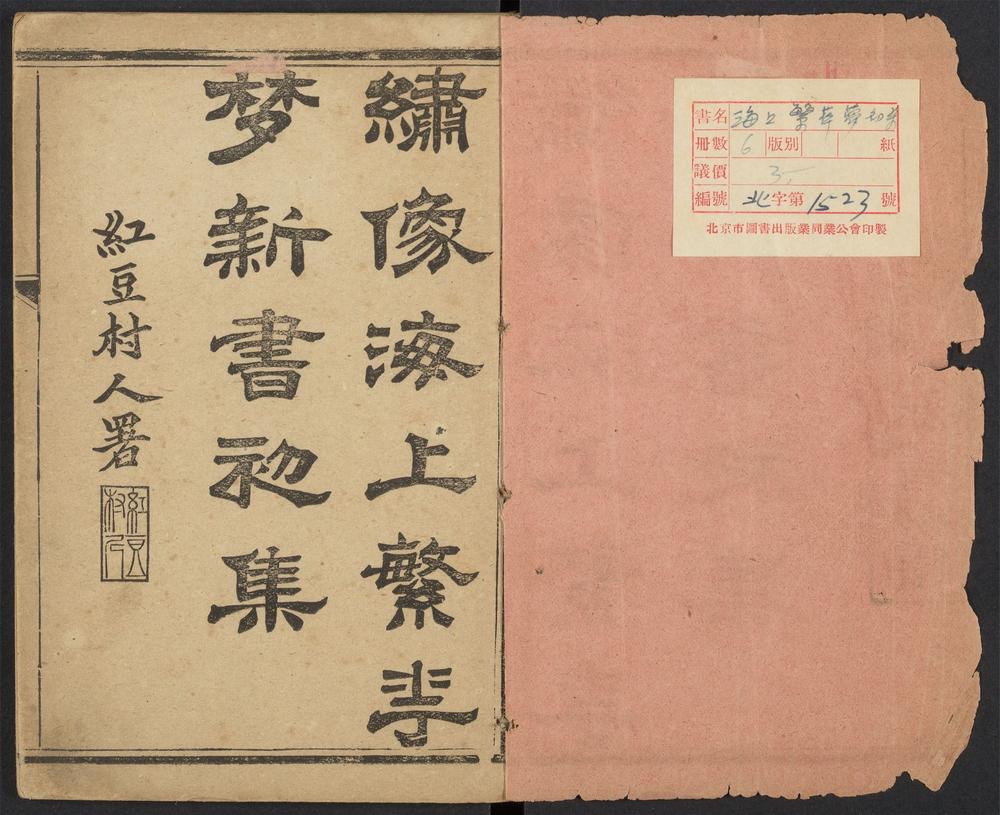 繡像海上繁𠌶
梦新書初集
紅豆村人署
紅豆村人
書名 海上繁華夢初集
冊數 6 版別 紙
議價 3,-
編號 北字第1523號
北京市圖書出版業同業公會印製